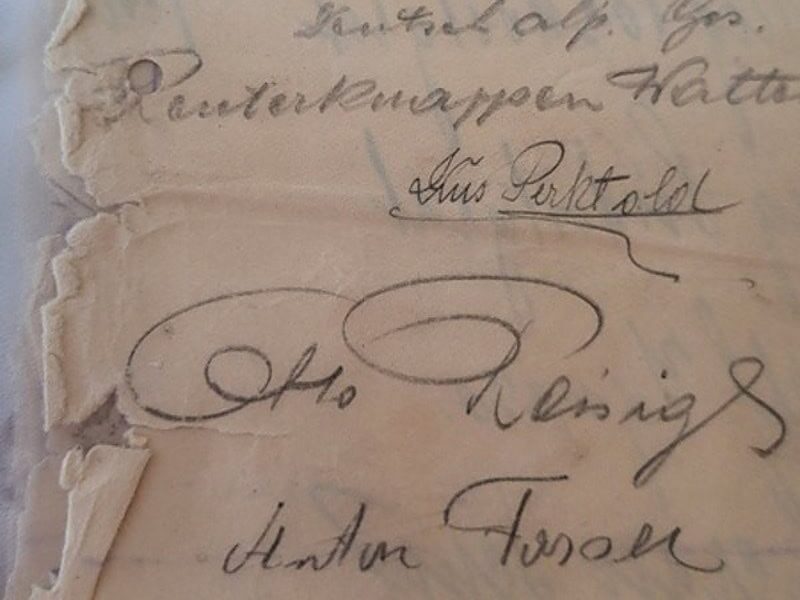 Deutsch alp. Ges.
Reuterknappen Watte
Perktold
Otto Reisigl
Anton